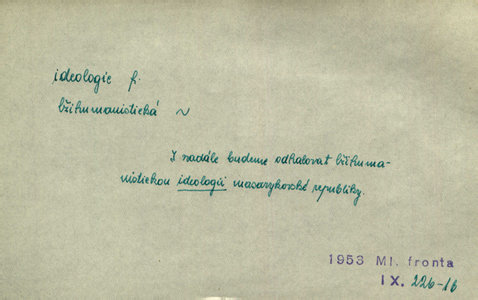 ideologie f.
lžihumanistická ~
I nadále budeme odhalovat lžihuma-
nistickou ideologii masarykovské republiky.
1953 Ml. fronta
IX. 226-16